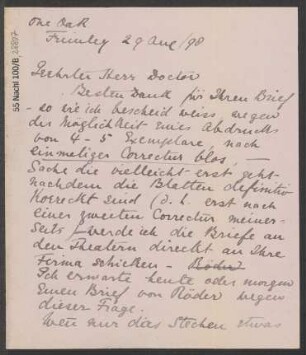 One Oak
Frimley 29 Aug/98
Geehrter Herr Doctor
Besten Dank für Ihren Brief
- so wie ich bescheid weiss wegen
der Möglichkeit eines Abdrucks
von 4-5 Exemplare, nach
einmaliger Correctur blos, -
Sache die vielleicht erst geht
nachdem die Platten definitiv
Korreckt sind (d. h. erst nach
einer zweiten Correctur meiner-
seits) werde ich die Briefe an
den Theatern direkt an Ihre
Firma schicken. - Röder
Ich erwarte heute oder morgen
Einen Brief von Röder wegen
dieser Frage.
Wenn nur das Stechen etwas
55 Nachl 100/B,